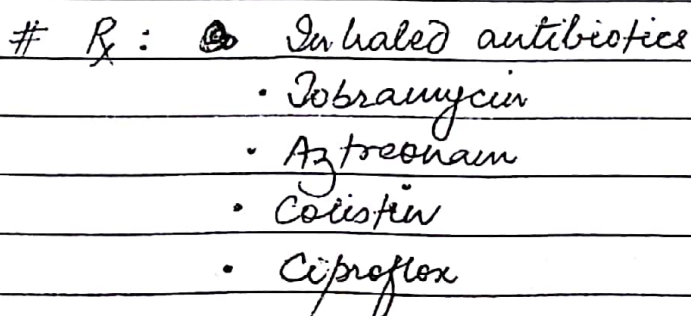 # Rx : Inhaled antibiotics
· Tobramycin
· Aztreonam
· Colistin
· Ciproflox